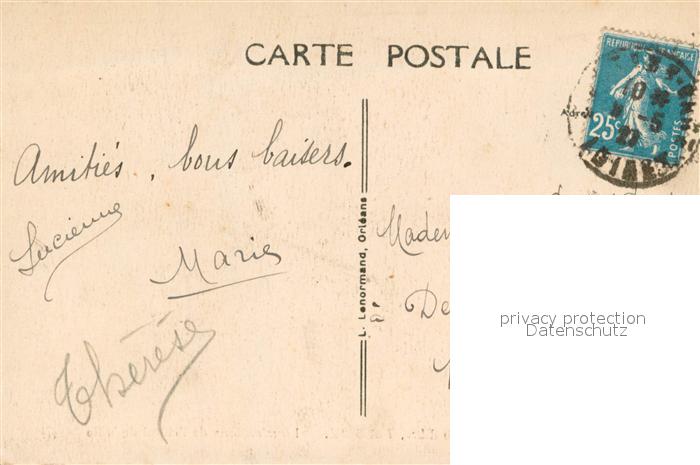 CARTE POSTALE
REPUBLIQUE FRANÇAISE
25c
POSTES
Amitiés, bons baisers.
Lucienne
Marie
Thérèse
L. Lenormand, Orléans
privacy protection
Datenschutz